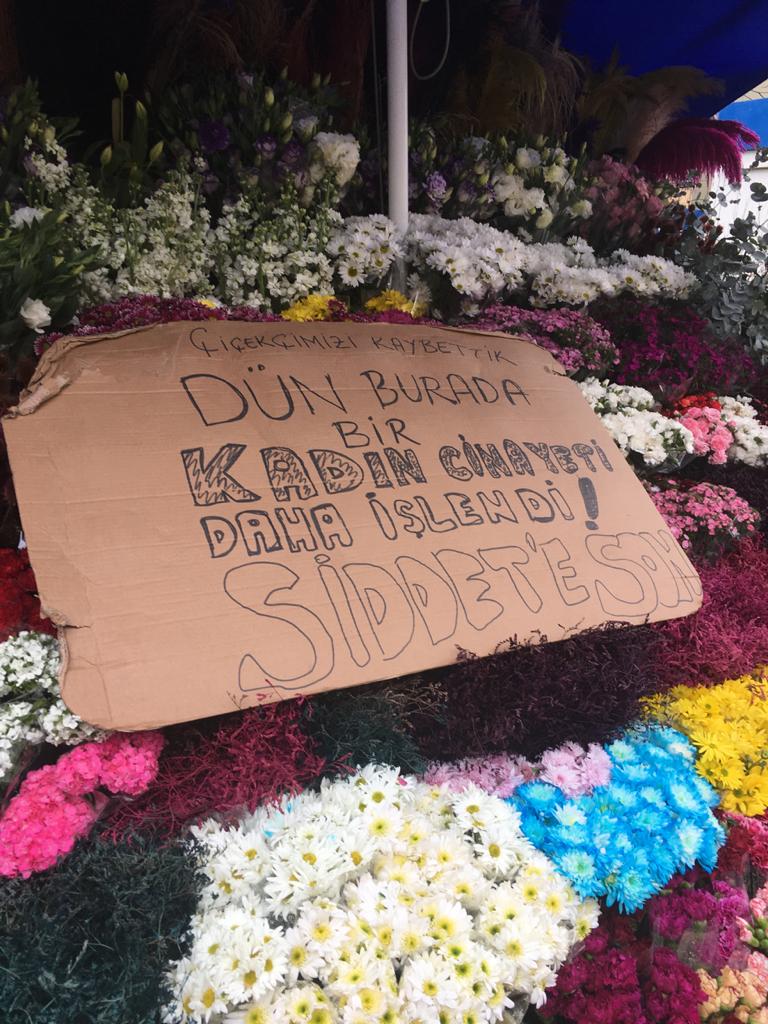 ÇİÇEKÇİMİZİ KAYBETTİK
DÜN BURADA
BİR
KADIN CİNAYETİ
DAHA İŞLENDİ!
SİDDET'E SON